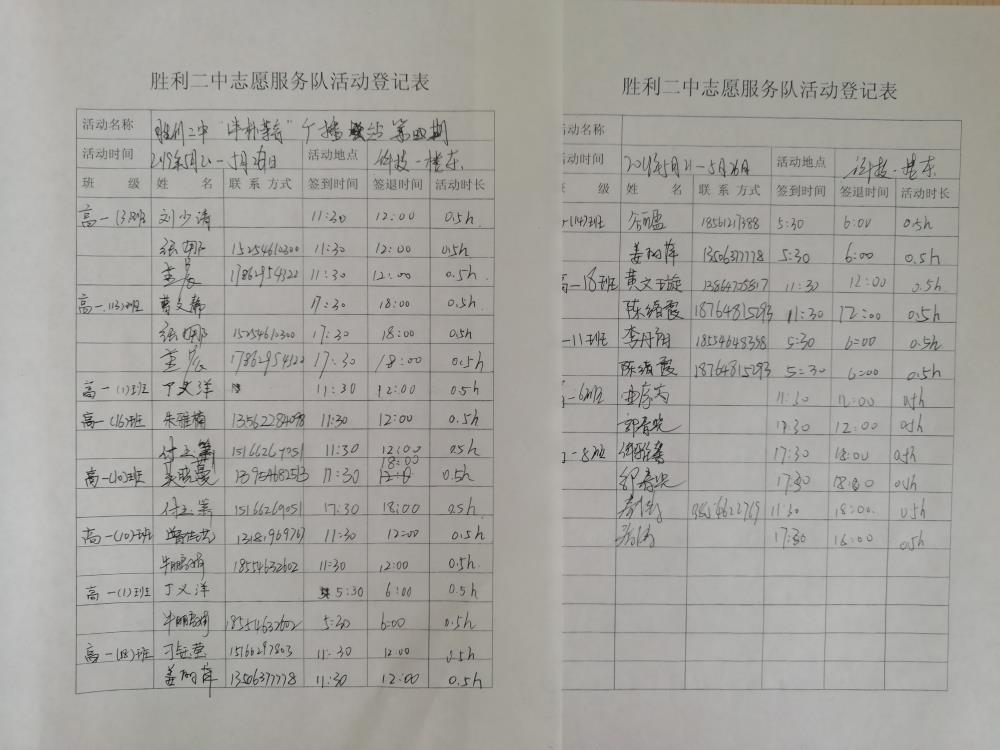 胜利二中志愿服务队活动登记表
活动名称 胜利二中 广播站 第四期
活动时间 2019年5月21-5月26日 活动地点 科技一楼东
班 级 姓 名 联系方式 签到时间 签退时间 活动时长
高一(3)班 刘少清 11:30 12:00 0.5h
张娜 15254610300 11:30 12:00 0.5h
董晨 17862954122 11:30 12:00 0.5h
高一(13)班 曹文静 17:30 18:00 0.5h
张娜 15254610300 17:30 18:00 0.5h
董晨 17862954122 17:30 18:00 0.5h
高一(1)班 丁义洋 11:30 12:00 0.5h
高一(16)班 朱雅楠 13562284098 11:30 12:00 0.5h
付玉 11:30 12:00 0.5h
高一(10)班 13954682513 17:30 18:00 0.5h
付玉 15166269051 17:30 18:00 0.5h
高一(10)班 11:30 12:00 0.5h
牛鹏 18554632602 11:30 12:00 0.5h
高一(1)班 丁义洋 5:30 6:00 0.5h
牛鹏 18554632602 5:30 6:00 0.5h
高一(18)班 15166297803 11:30 12:00 0.5h
姜丽萍 13506377778 11:30 12:00 0.5h
胜利二中志愿服务队活动登记表
活动名称
活动时间 2019年5月21-5月26日 活动地点 科技一楼东
班 级 姓 名 联系方式 签到时间 签退时间 活动时长
(14)班 18561217388 5:30 6:00 0.5h
姜丽萍 13506377778 5:30 6:00 0.5h
高一18班 黄文玉旋 13864725817 11:30 12:00 0.5h
陈绪霞 18764815293 11:30 12:00 0.5h
一11班 李丹阳 18554648358 5:30 6:00 0.5h
陈绪霞 18764815293 5:30 6:00 0.5h
一6班 11:30 12:00 0.5h
17:30 12:00 0.5h
一8班 17:30 18:00 0.5h
17:30 18:00 0.5h
11:30 18:00 0.5h
17:30 18:00 0.5h